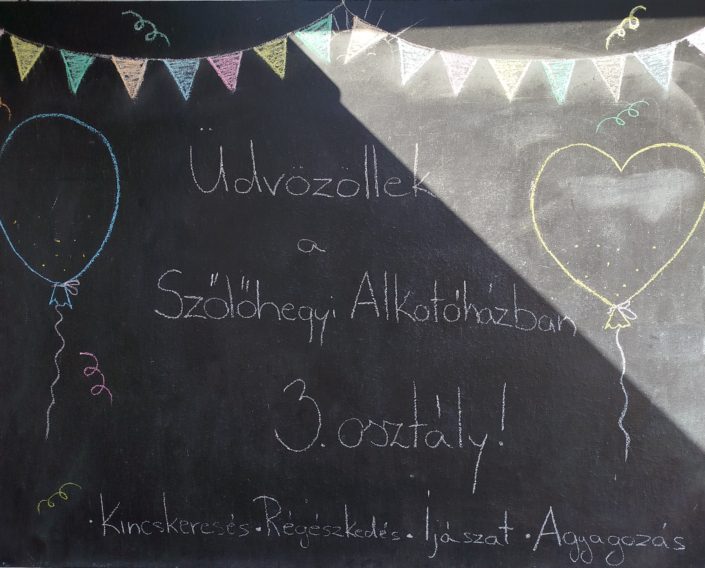 Üdvözöllek
a
Szőlőhegyi Alkotóházban
3. osztály!
• Kincskeresés • Régészkedés • Íjászat • Agyagozás